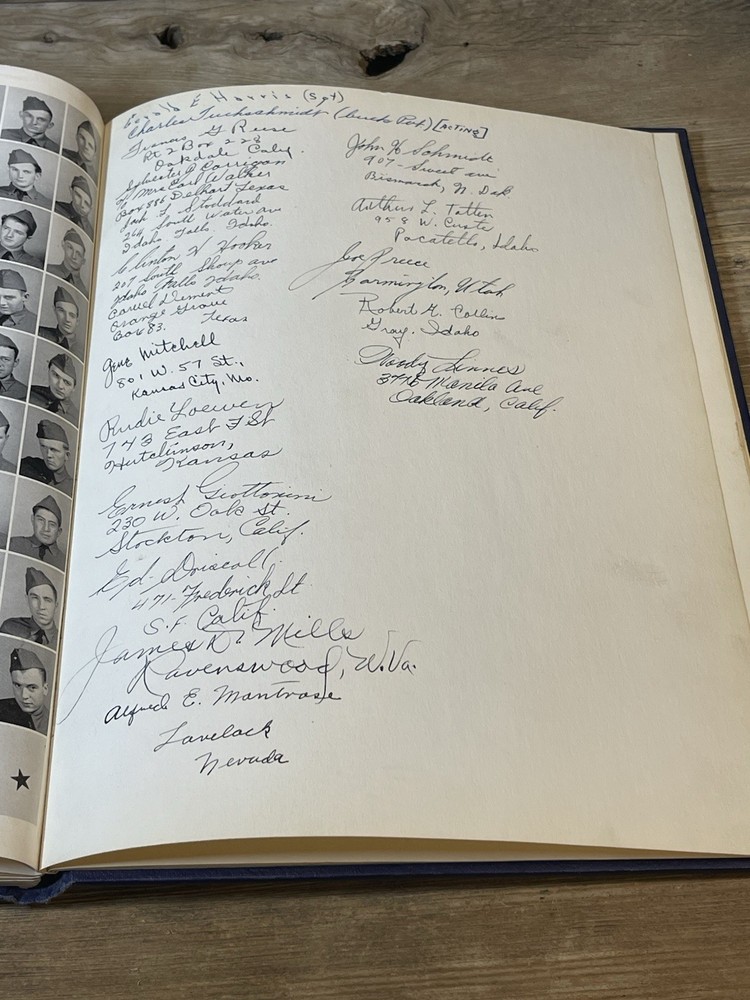 E Harris (Sgt)
Charles Tuchschmidt (Buck Pvt) [ACTING]
Francis G Reese
Rt 2 Box 228
Oakdale Calif.
Sylvester J Corrigan
% Mrs Carl Walker
Box 886 Delhart Texas
Jack F. Stoddard
264 South Water Ave
Idaho Falls, Idaho.
Clinton H Hooker
207 South Shoup ave
Idaho Falls Idaho.
Carvel Dement
Orange Grove
Box 83. Texas
Gene Mitchell
801 W. 57 St.,
Kansas City, Mo.
Rudie Loewen
743 East F St
Hutchinson,
Kansas
Ernest Giottonini
230 W. Oak St.
Stockton, Calif.
Ed. Driscoll
471- Frederick St
S.F. Calif.
James D. Mills
Ravenswood, W.Va.
Alfred E. Montrose
Lovelock
Nevada
John H Schmidt
907- Sweet ave
Bismarck, N. Dak
Arthur L. Totten
958 W. Custer
Pocatello, Idaho
Joe Preece
Farmington, Utah
Robert G. Collins
Gray, Idaho
Woody Linnes
Manila Ave
Oakland, Calif.